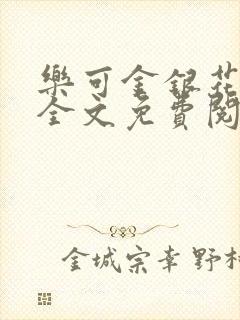 樂可金銀花
全文免費閱
金城宗幸野村